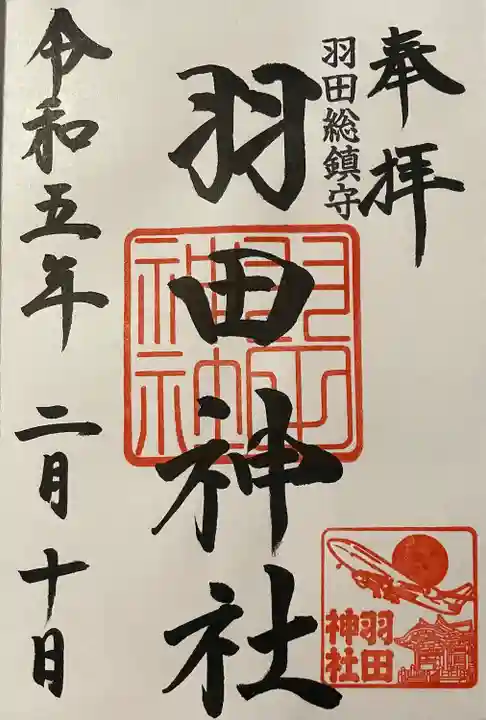 奉拝
羽田総鎮守
羽田神社
令和五年 二月十日
羽田
神社